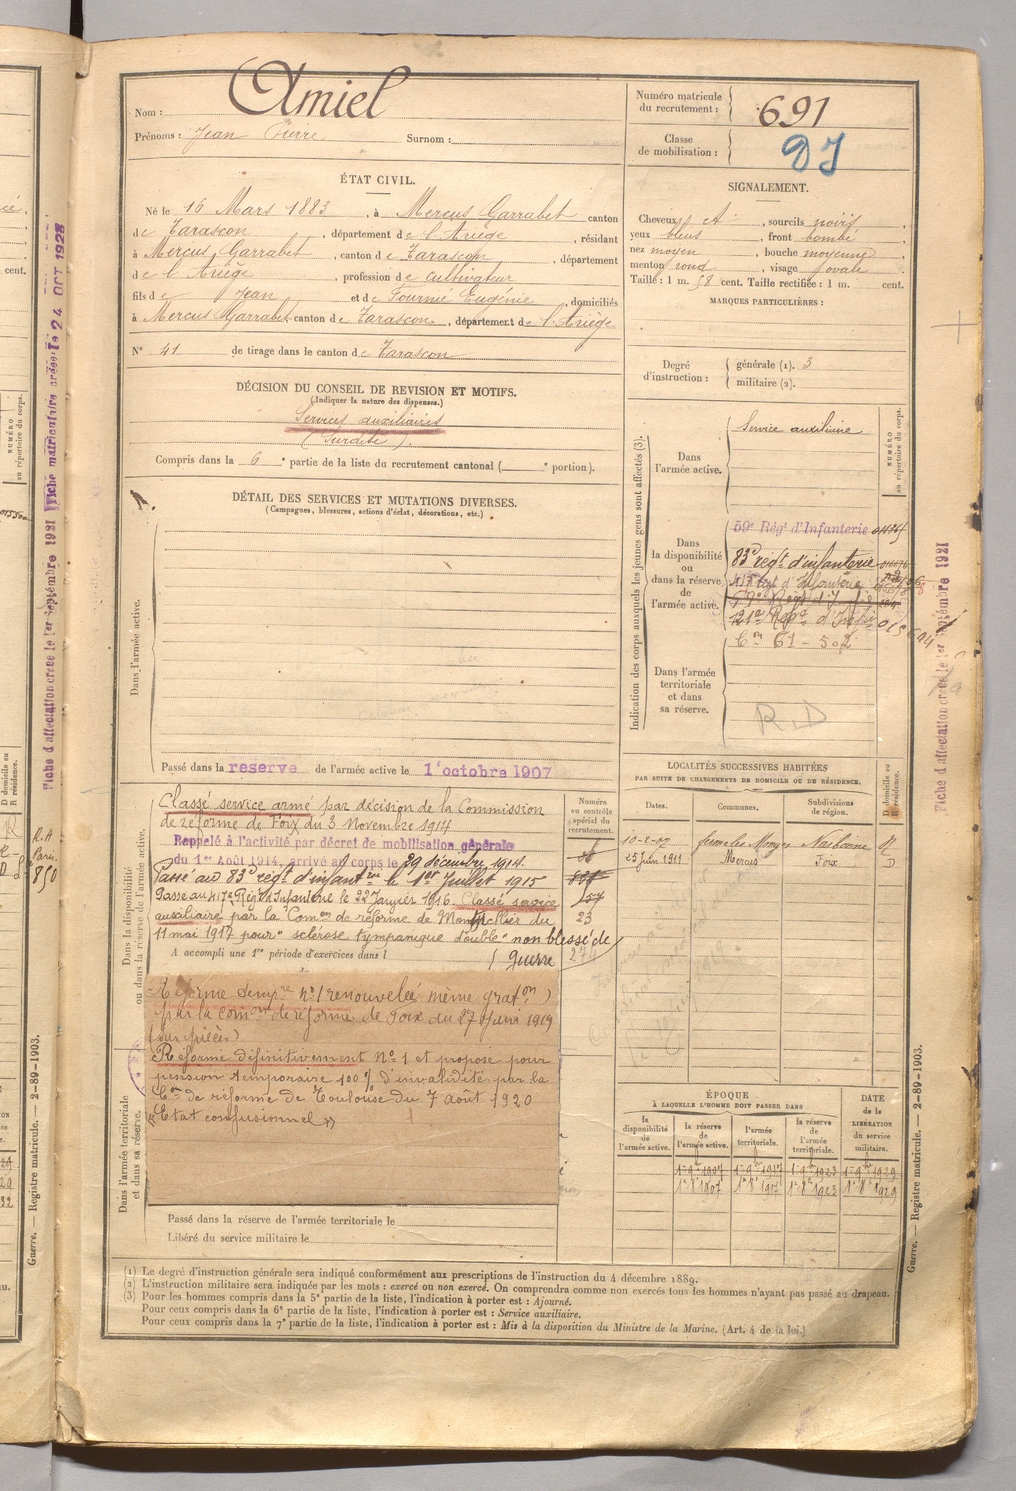 Nom : Amiel
Prénoms : Jean Pierre Surnom :
Numéro matricule du recrutement : 691
Classe de mobilisation :
ÉTAT CIVIL.
Né le 16 Mars 1883, à Mercus Garrabet canton
de Tarascon, département de l'Ariège, résidant
à Mercus Garrabet, canton de Tarascon, département
de l'Ariège, profession de cultivateur
fils de Jean et de Fournié Eugénie, domiciliés
à Mercus Garrabet canton de Tarascon, département de l'Ariège
N° 41 de tirage dans le canton de Tarascon
SIGNALEMENT.
Cheveux, sourcils noirs
yeux bleus, front bombé
nez moyen, bouche moyenne
menton rond, visage ovale
Taille : 1 m. 58 cent. Taille rectifiée : 1 m. cent.
MARQUES PARTICULIÈRES :
Degré d'instruction : générale (1). 3
militaire (2).
DÉCISION DU CONSEIL DE REVISION ET MOTIFS.
(Indiquer la nature des dispenses.)
Services auxiliaires
(Surdité).
Compris dans la 6e partie de la liste du recrutement cantonal ( e portion).
DÉTAIL DES SERVICES ET MUTATIONS DIVERSES.
(Campagnes, blessures, actions d'éclat, décorations, etc.)
Dans l'armée active.
Passé dans la reserve de l'armée active le 1e octobre 1907
Indication des corps auxquels les jeunes gens sont affectés (3).
NUMÉRO au répertoire du corps.
Dans l'armée active.
Service auxiliaire
Dans la disponibilité ou dans la réserve de l'armée active.
59e Régt d'Infanterie
83e régt d'infanterie
417e Régt d'Infanterie
121e Régt d'Infie
Con 61-502
Dans l'armée territoriale et dans sa réserve.
R.D
Dans la disponibilité ou dans la réserve de l'armée active.
Classé service armé par décision de la Commission
de réforme de Foix du 3 Novembre 1914
Rappelé à l'activité par décret de mobilisation générale
du 1er Août 1914, arrivé au corps le 29 décembre 1914.
Passé au 83e régt d'infantrie le 1er Juillet 1915
Passé au 417e Régt d'Infanterie le 22 Janvier 1916. Classé service
auxiliaire par la Comon de réforme de Montpellier du
11 mai 1917 pour "sclérose tympanique double" non blessé de
guerre
A accompli une 1re période d'exercices dans l
Réforme tempre n° 1 renouvelée même graton
par la comon de réforme de Foix du 27 1919
(sur pièces)
Réformé définitivement N° 1 et proposé pour
pension temporaire 100 % d'invalidité par la
Con de réforme de Toulouse du 7 août 1920
"Etat confusionnel"
Dans l'armée territoriale et dans sa réserve.
Passé dans la réserve de l'armée territoriale le
Libéré du service militaire le
Numéro au contrôle spécial du recrutement.
23
274
LOCALITÉS SUCCESSIVES HABITÉES
PAR SUITE DE CHANGEMENTS DE DOMICILE OU DE RÉSIDENCE.
Dates. Communes. Subdivisions de région. D domicile ou R résidence.
10-2-07 Narbonne R
25 Juin 1911 Mercus Foix D
ÉPOQUE
À LAQUELLE L'HOMME DOIT PASSER DANS
la disponibilité de l'armée active. la réserve de l'armée active. l'armée territoriale. la réserve de l'armée territoriale.
DATE de la LIBÉRATION du service militaire.
(1) Le degré d'instruction générale sera indiqué conformément aux prescriptions de l'instruction du 4 décembre 1889.
(2) L'instruction militaire sera indiquée par les mots : exercé ou non exercé. On comprendra comme non exercés tous les hommes n'ayant pas passé au drapeau.
(3) Pour les hommes compris dans la 5e partie de la liste, l'indication à porter est : Ajourné.
Pour ceux compris dans la 6e partie de la liste, l'indication à porter est : Service auxiliaire.
Pour ceux compris dans la 7e partie de la liste, l'indication à porter est : Mis à la disposition du Ministre de la Marine. (Art. 4 de la loi.)
Fiche d'affectation créée le 1er septembre 1921
Guerre. — Registre matricule. — 2-89-1903.
Fiche d'affectation créée le 1er septembre 1921
Fiche matriculaire créée le 24 OCT 1928
Guerre. — Registre matricule. — 2-89-1903.